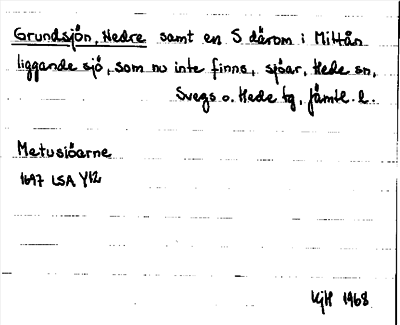 Grundsjön, Nedre samt en S därom i Mittån
liggande sjö, som nu inte finns, sjöar, Hede sn,
Svegs o. Hede tg, Jämtl. l.
Metusiöarne
1697 LSA Y12
KjH 1968